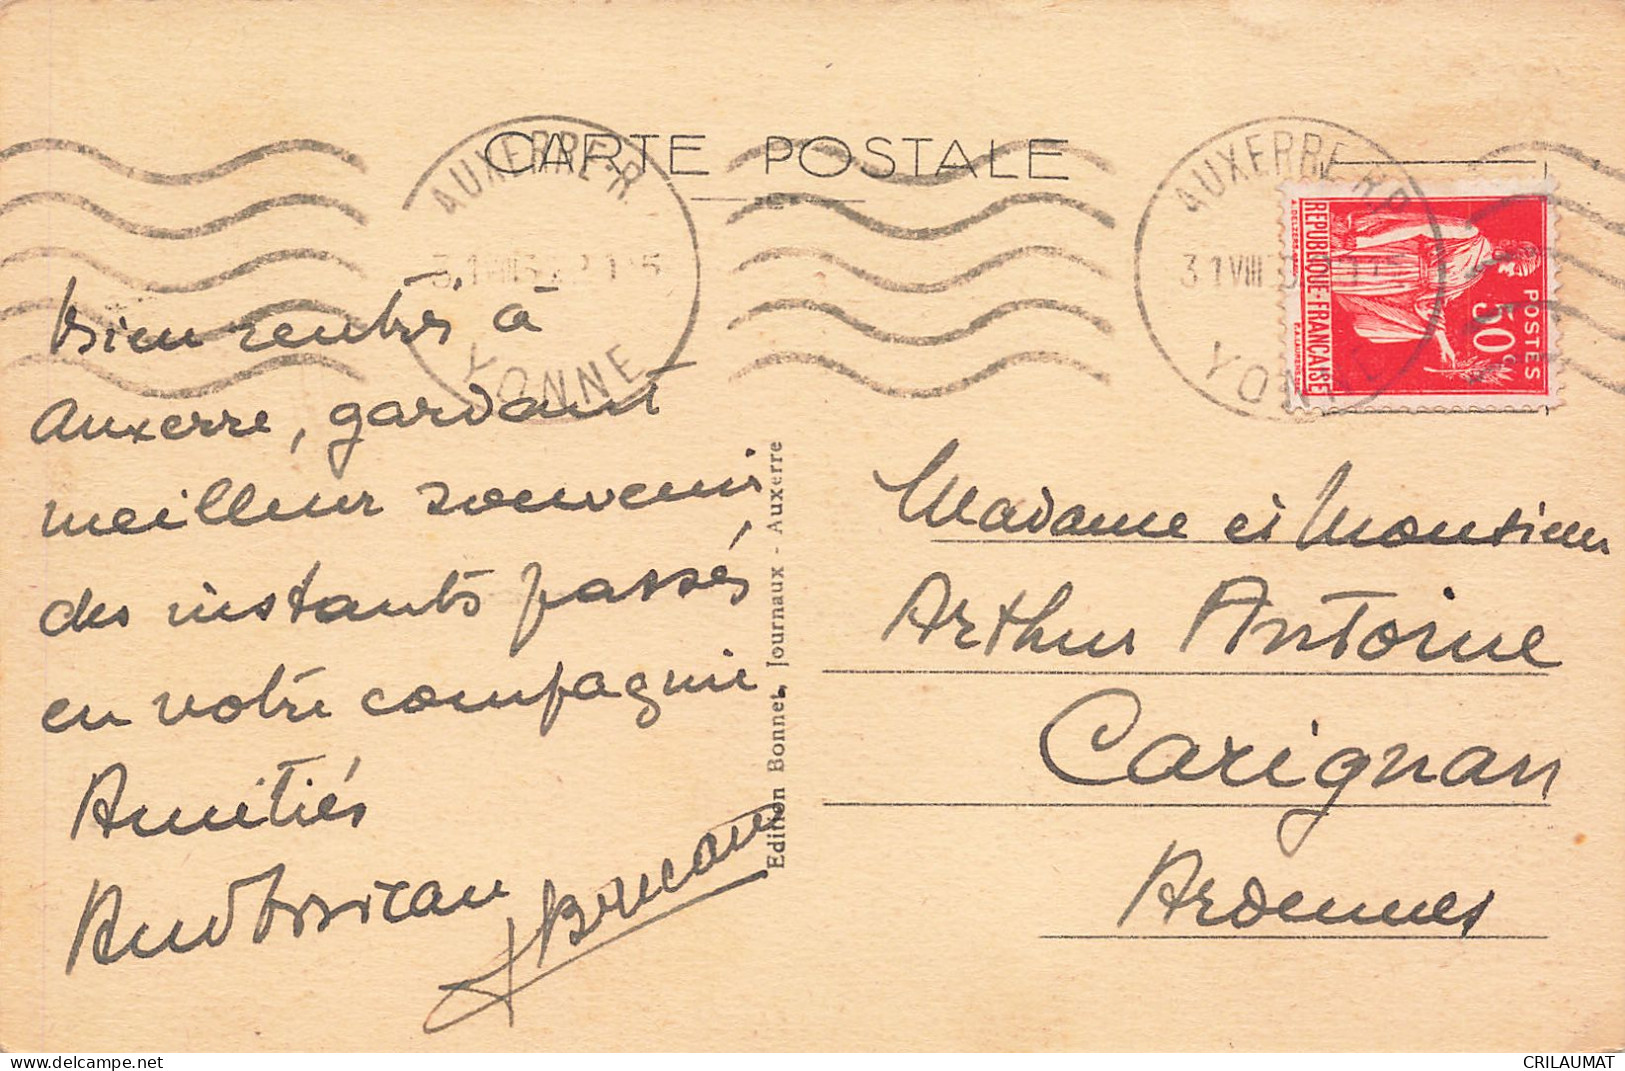 CARTE POSTALE
AUXERRE-R.P.
31 VIII
YONNE
AUXERRE R.P.
31 VIII
YONNE
REPUBLIQUE-FRANÇAISE
POSTES
50c
Bien rentrés à
Auxerre, gardant
meilleur souvenir
des instants passés
en votre compagnie
Amitiés
Edition Bonnet, Journaux - Auxerre
Madame et Monsieur
Arthur Antoine
Carignan
Ardennes
www.delcampe.net
CRILAUMAT